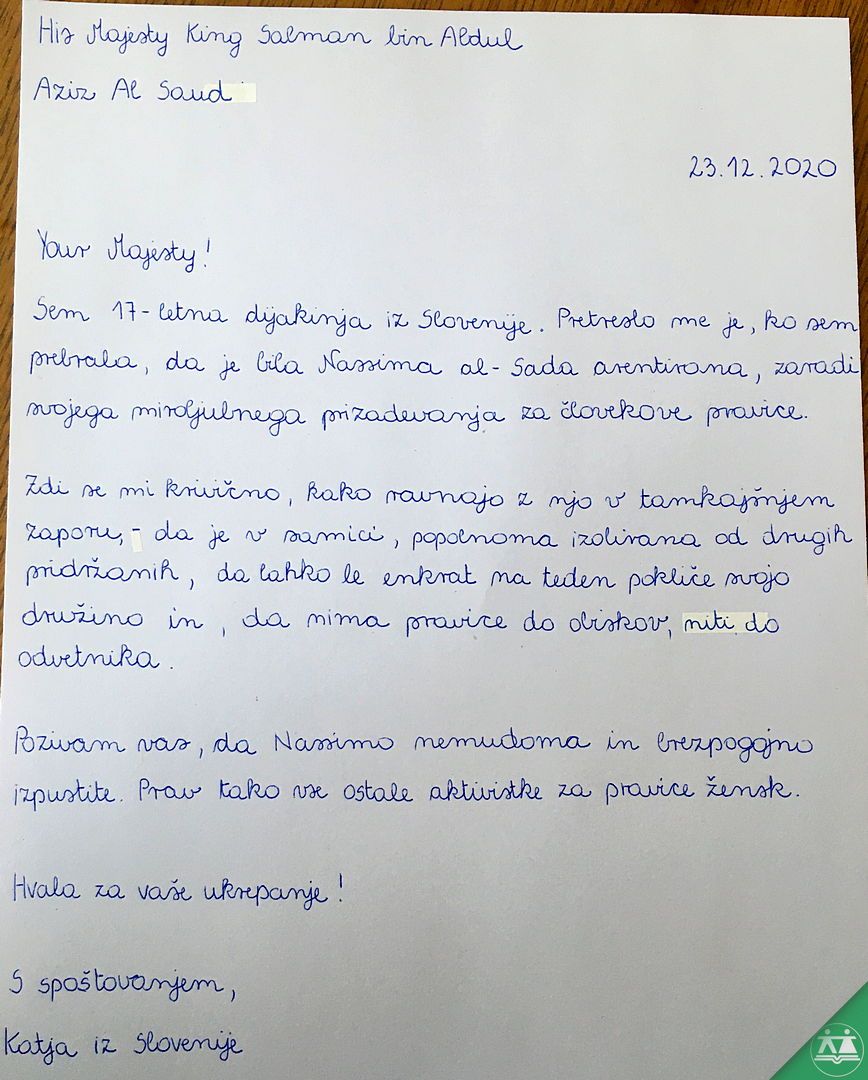 His Majesty King Salman bin Abdul
Aziz Al Saud
23.12.2020
Your Majesty!
Sem 17-letna dijakinja iz Slovenije. Pretreslo me je, ko sem
prebrala, da je bila Nassima al-Sada arentirana, zaradi
svojega miroljubnega prizadevanja za človekove pravice.
Zdi se mi krivično, kako ravnajo z njo v tamkajšnjem
zaporu, - da je v samici, popolnoma izolirana od drugih
pridržanih, da lahko le enkrat na teden pokliče svojo
družino in, da nima pravice do obiskov, niti do
odvetnika.
Pozivam vas, da Nassimo nemudoma in brezpogojno
izpustite. Prav tako vse ostale aktivistke za pravice žensk.
Hvala za vaše ukrepanje!
S spoštovanjem,
Katja iz Slovenije